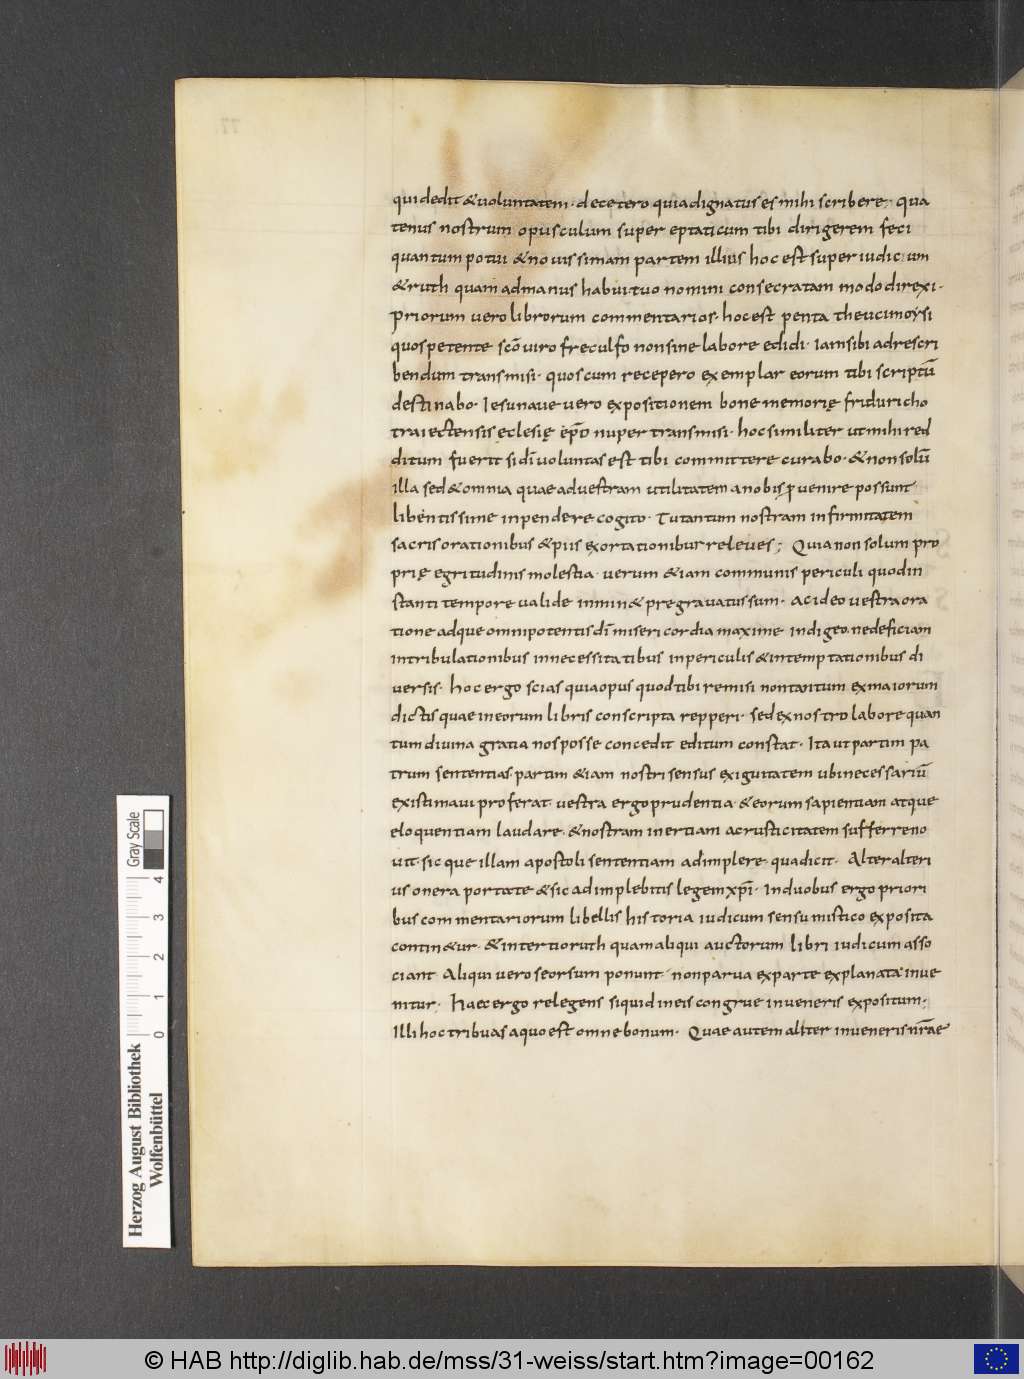 qui dedit & voluntatem · de cetero quia dignatus es mihi scribere · qua
tenus nostrum opusculum super eptaticum tibi dirigerem feci
quantum potui & novissimam partem illius hoc est super iudicum
& ruth quam ad manus habui tuo nomini consecratam modo direxi ·
Priorum vero librorum commentarios · hoc est pentatheuci moysi
quos petente sc̄o viro freculfo non sine labore edidi · iam sibi ad rescri
bendum transmisi · quos cum recepero exemplar eorum tibi scriptū
destinabo · Iesu nave vero expositionem bone memorię friduricho
traiectensis eclesię ep̄o nuper transmisi · hoc similiter ut mihi red
ditum fuerit si dī voluntas est tibi committere curabo · & non solū
illa sed & omnia quae ad vestram utilitatem a nobis ꝓvenire possunt
libentissime inpendere cogito · Tu tantum nostram infirmitatem
sacris orationibus & piis exortationibus releves ; Quia non solum pro
prię egritudinis molestia · verum &iam communis periculi quod in
stanti tempore valide inmin& pregravatus sum · ac ideo vestra ora
tione adque omnipotentis dī misericordia maxime indigeo ne deficiam
in tribulationibus in necessitatibus in periculis & in temptationibus di
versis · hoc ergo scias quia opus quod tibi remisi non tantum ex maiorum
dictis quae in eorum libris conscripta repperi · sed ex nostro labore quan
tum divina gratia nos posse concedit editum constat · Ita ut partim pa
trum sententias · partim &iam nostri sensus exiguitatem ubi necessariū
existimavi proferat · vestra ergo prudentia & eorum sapientiam atque
eloquentiam laudare · & nostram inertiam ac rusticitatem sufferre no
vit · sicque illam apostoli sententiam adimplere qua dicit · Alter alteri
us onera portate & sic adimplebitis legem xp̄i · In duobus ergo priori
bus commentariorum libellis historia iudicum sensu mistico exposita
contin&ur · & in tertio ruth quam aliqui auctorum libri iudicum asso
ciant Aliqui vero seorsum ponunt · non parva ex parte explanata inve
nitur · Haec ergo relegens si quid in eis congrue inveneris expositum ·
illi hoc tribuas a quo est omne bonum · Quae autem aliter inveneris nr̄ae
Herzog August Bibliothek
Wolfenbüttel
0 1 2 3 4
Gray Scale
© HAB http://diglib.hab.de/mss/31-weiss/start.htm?image=00162